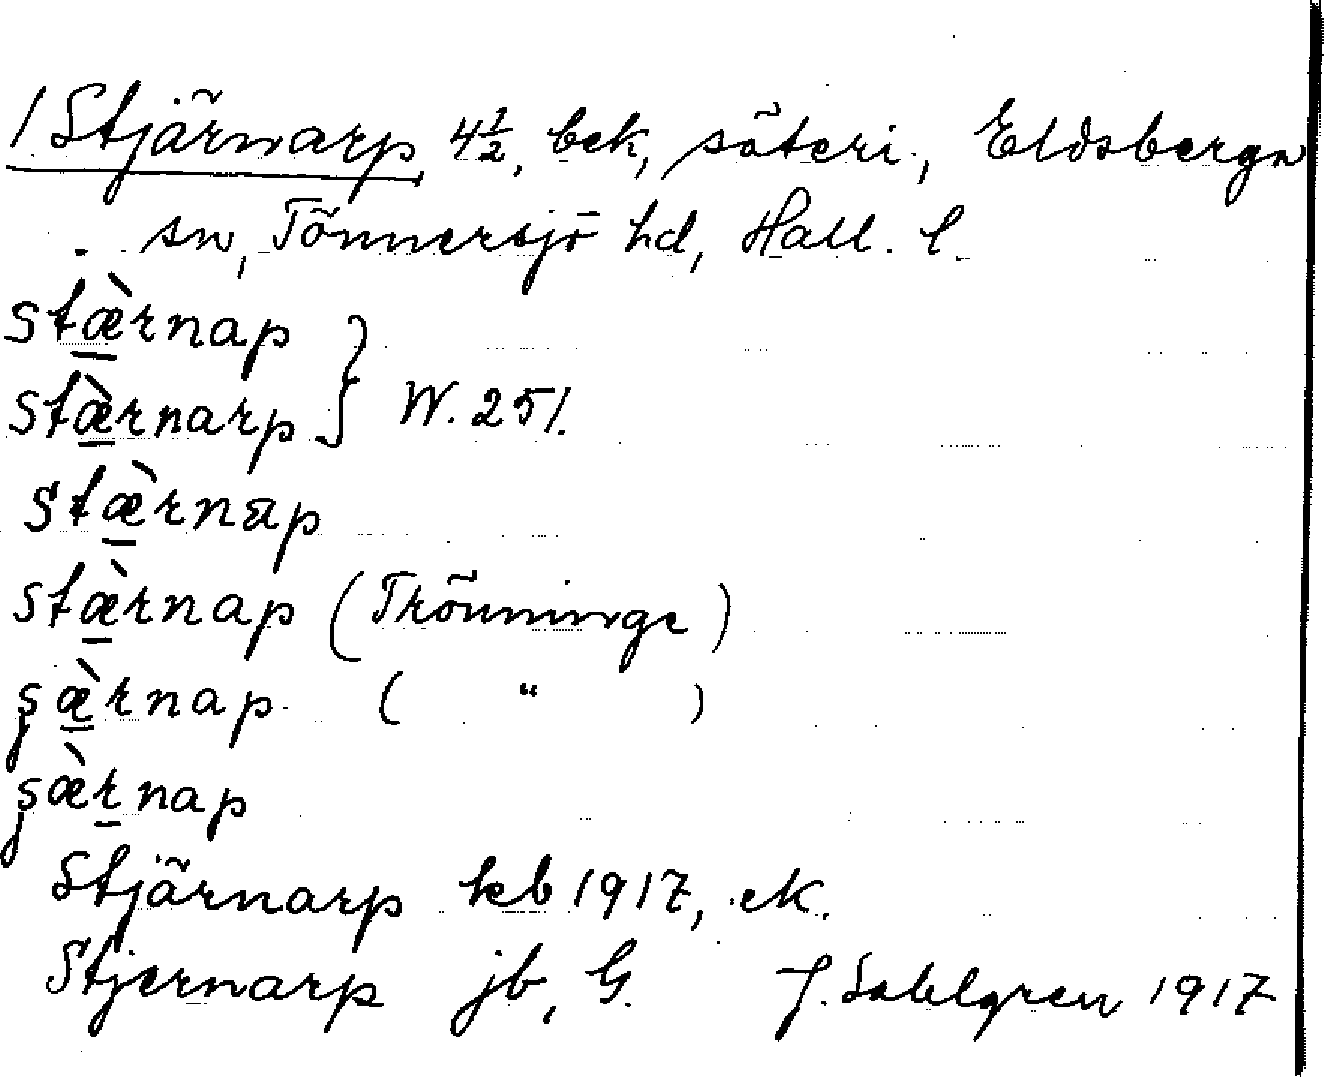 1 Stjärnarp 4½, bek, säteri, Eldsberga
sn, Tönnersjö hd, Hall. l.
stæ̀rnap
stæ̀rnarp } W. 251.
stæ̀rnap
stæ̀rnap (Trönninge)
ʂæ̀rnap ( " )
ʂæ̀rnap
Stjärnarp kb 1917, ek.
Stjernarp jb, G. J. Sahlgren 1917